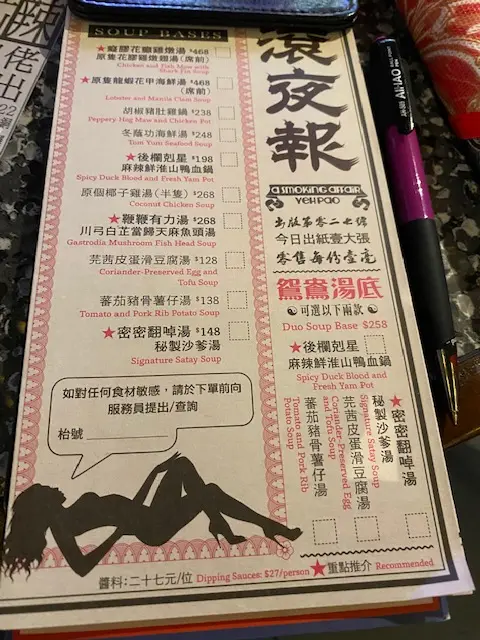 SOUP BASES
★窩膠花雞雞燉湯 $468
原隻花膠雞燉翅湯(席前)
Chicken and Fish Maw with
Shark Fin Soup
★原隻龍蝦花甲海鮮湯 $468
(席前)
Lobster and Manila Clam Soup
胡椒豬肚雞鍋 $238
Peppery Hog Maw and Chicken Pot
冬蔭功海鮮湯 $248
Tom Yum Seafood Soup
★後欄剋星 $198
麻辣鮮淮山鴨血鍋
Spicy Duck Blood and Fresh Yam Pot
原個椰子雞湯(半隻) $268
Coconut Chicken Soup
★鞭鞭有力湯 $268
川弓白芷當歸天麻魚頭湯
Gastrodia Mushroom Fish Head Soup
芫茜皮蛋滑豆腐湯 $128
Coriander-Preserved Egg and
Tofu Soup
蕃茄豬骨薯仔湯 $138
Tomato and Pork Rib Potato Soup
★密密翻啅湯 $148
秘製沙爹湯
Signature Satay Soup
如對任何食材敏感,請於下單前向
服務員提出/查詢
枱號
醬料:二十七元/位 Dipping Sauces: $27/person ★重點推介 Recommended
滾
夜
報
A SMOKING AFFAIR
YEH PAO
出版第零二七號
今日出紙壹大張
零售每份壹毫
鴛鴦湯底
可選以下兩款
Duo Soup Base $258
★後欄剋星
麻辣鮮淮山鴨血鍋
Spicy Duck Blood and
Fresh Yam Pot
★密密翻啅湯
秘製沙爹湯
Signature Satay Soup
芫茜皮蛋滑豆腐湯
Coriander-Preserved Egg
and Tofu Soup
蕃茄豬骨薯仔湯
Tomato and Pork Rib
Potato Soup
AIHAO
佬出